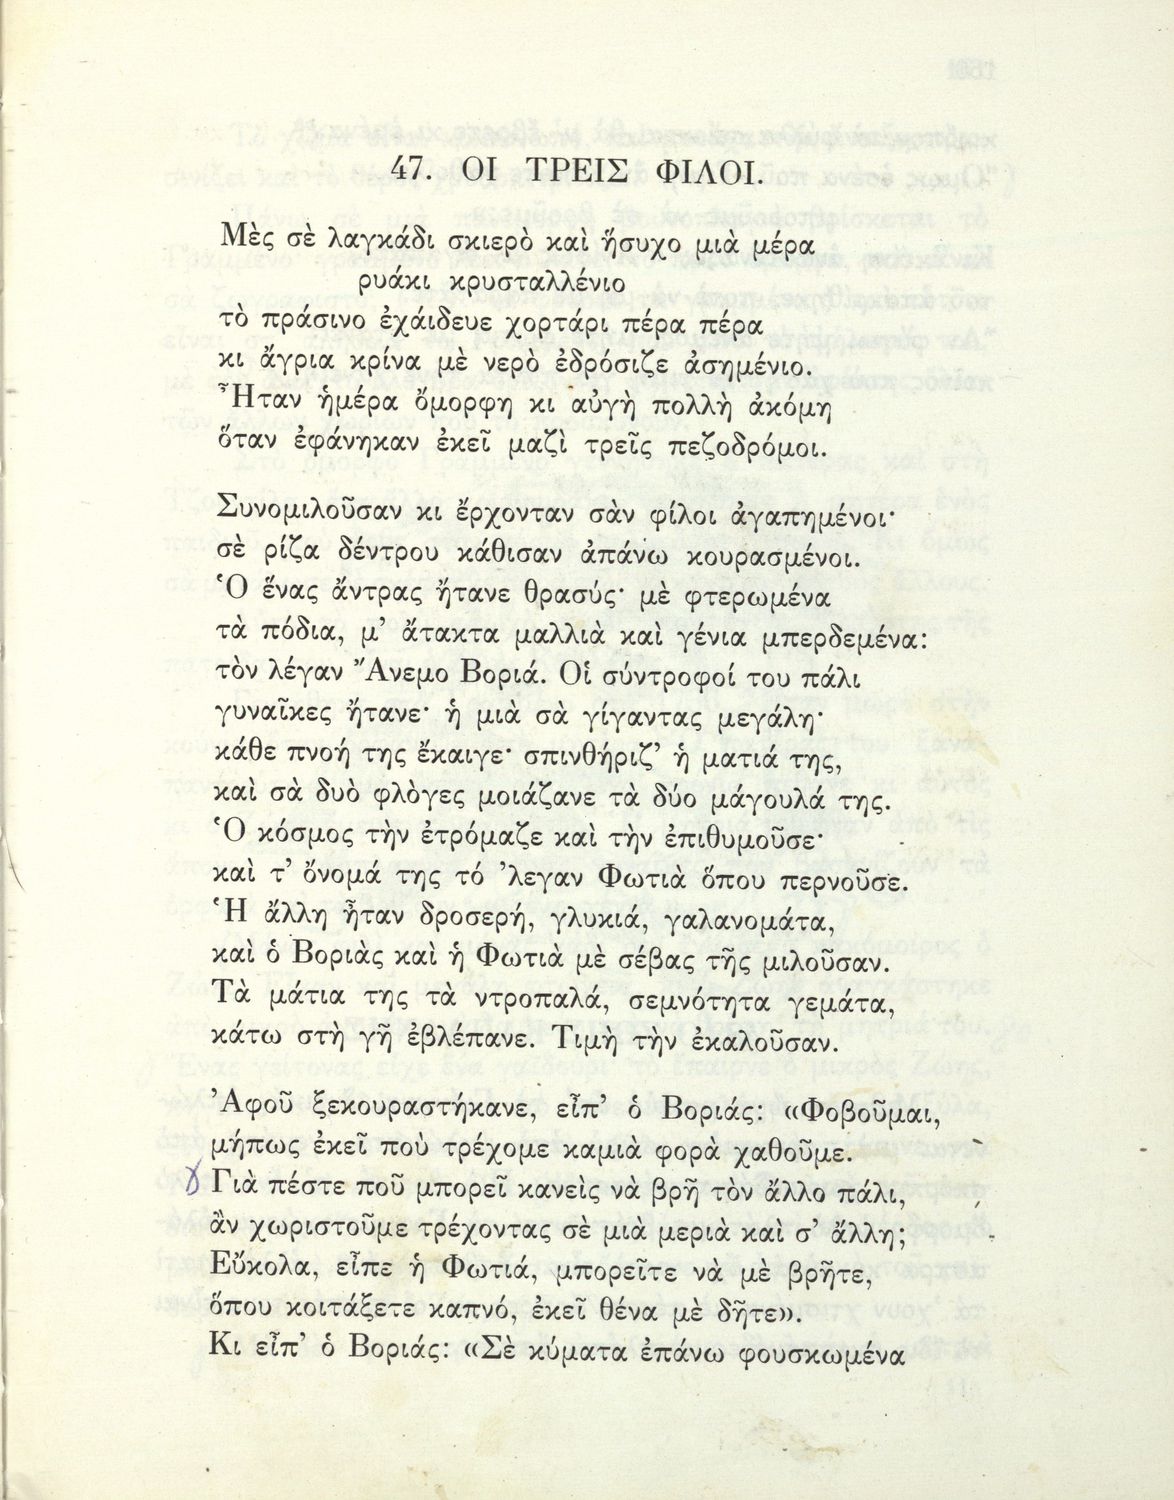 47. ΟΙ ΤΡΕΙΣ ΦΙΛΟΙ.
Μὲς σὲ λαγκάδι σκιερὸ καὶ ἥσυχο μιὰ μέρα
ρυάκι κρυσταλλένιο
τὸ πράσινο ἐχάιδευε χορτάρι πέρα πέρα
κι ἄγρια κρίνα μὲ νερὸ ἐδρόσιζε ἀσημένιο.
Ἦταν ἡμέρα ὄμορφη κι αὐγὴ πολλὴ ἀκόμη
ὅταν ἐφάνηκαν ἐκεῖ μαζὶ τρεῖς πεζοδρόμοι.
Συνομιλοῦσαν κι ἔρχονταν σὰν φίλοι ἀγαπημένοι·
σὲ ρίζα δέντρου κάθισαν ἀπάνω κουρασμένοι.
Ὁ ἕνας ἄντρας ἤτανε θρασύς· μὲ φτερωμένα
τὰ πόδια, μ’ ἄτακτα μαλλιὰ καὶ γένια μπερδεμένα:
τὸν λέγαν Ἄνεμο Βοριά. Οἱ σύντροφοί του πάλι
γυναῖκες ἤτανε· ἡ μιὰ σὰ γίγαντας μεγάλη·
κάθε πνοή της ἔκαιγε· σπινθήριζ’ ἡ ματιά της,
καὶ σὰ δυὸ φλόγες μοιάζανε τὰ δύο μάγουλά της.
Ὁ κόσμος τὴν ἐτρόμαζε καὶ τὴν ἐπιθυμοῦσε·
καὶ τ’ ὄνομά της τό ’λεγαν Φωτιὰ ὅπου περνοῦσε.
Ἡ ἄλλη ἦταν δροσερή, γλυκιά, γαλανομάτα,
καὶ ὁ Βοριὰς καὶ ἡ Φωτιὰ μὲ σέβας τῆς μιλοῦσαν.
Τὰ μάτια της τὰ ντροπαλά, σεμνότητα γεμάτα,
κάτω στὴ γῆ ἐβλέπανε. Τιμὴ τὴν ἐκαλοῦσαν.
Ἀφοῦ ξεκουραστήκανε, εἶπ’ ὁ Βοριάς: «Φοβοῦμαι,
μήπως ἐκεῖ ποὺ τρέχομε καμιὰ φορὰ χαθοῦμε.
Γιὰ πέστε ποῦ μπορεῖ κανεὶς νὰ βρῆ τὸν ἄλλο πάλι,
ἂν χωριστοῦμε τρέχοντας σὲ μιὰ μεριὰ καὶ σ’ ἄλλη;
Εὔκολα, εἶπε ἡ Φωτιά, μπορεῖτε νὰ μὲ βρῆτε,
ὅπου κοιτάξετε καπνό, ἐκεῖ θένα μὲ δῆτε».
Κι εἶπ’ ὁ Βοριάς: «Σὲ κύματα ἐπάνω φουσκωμένα